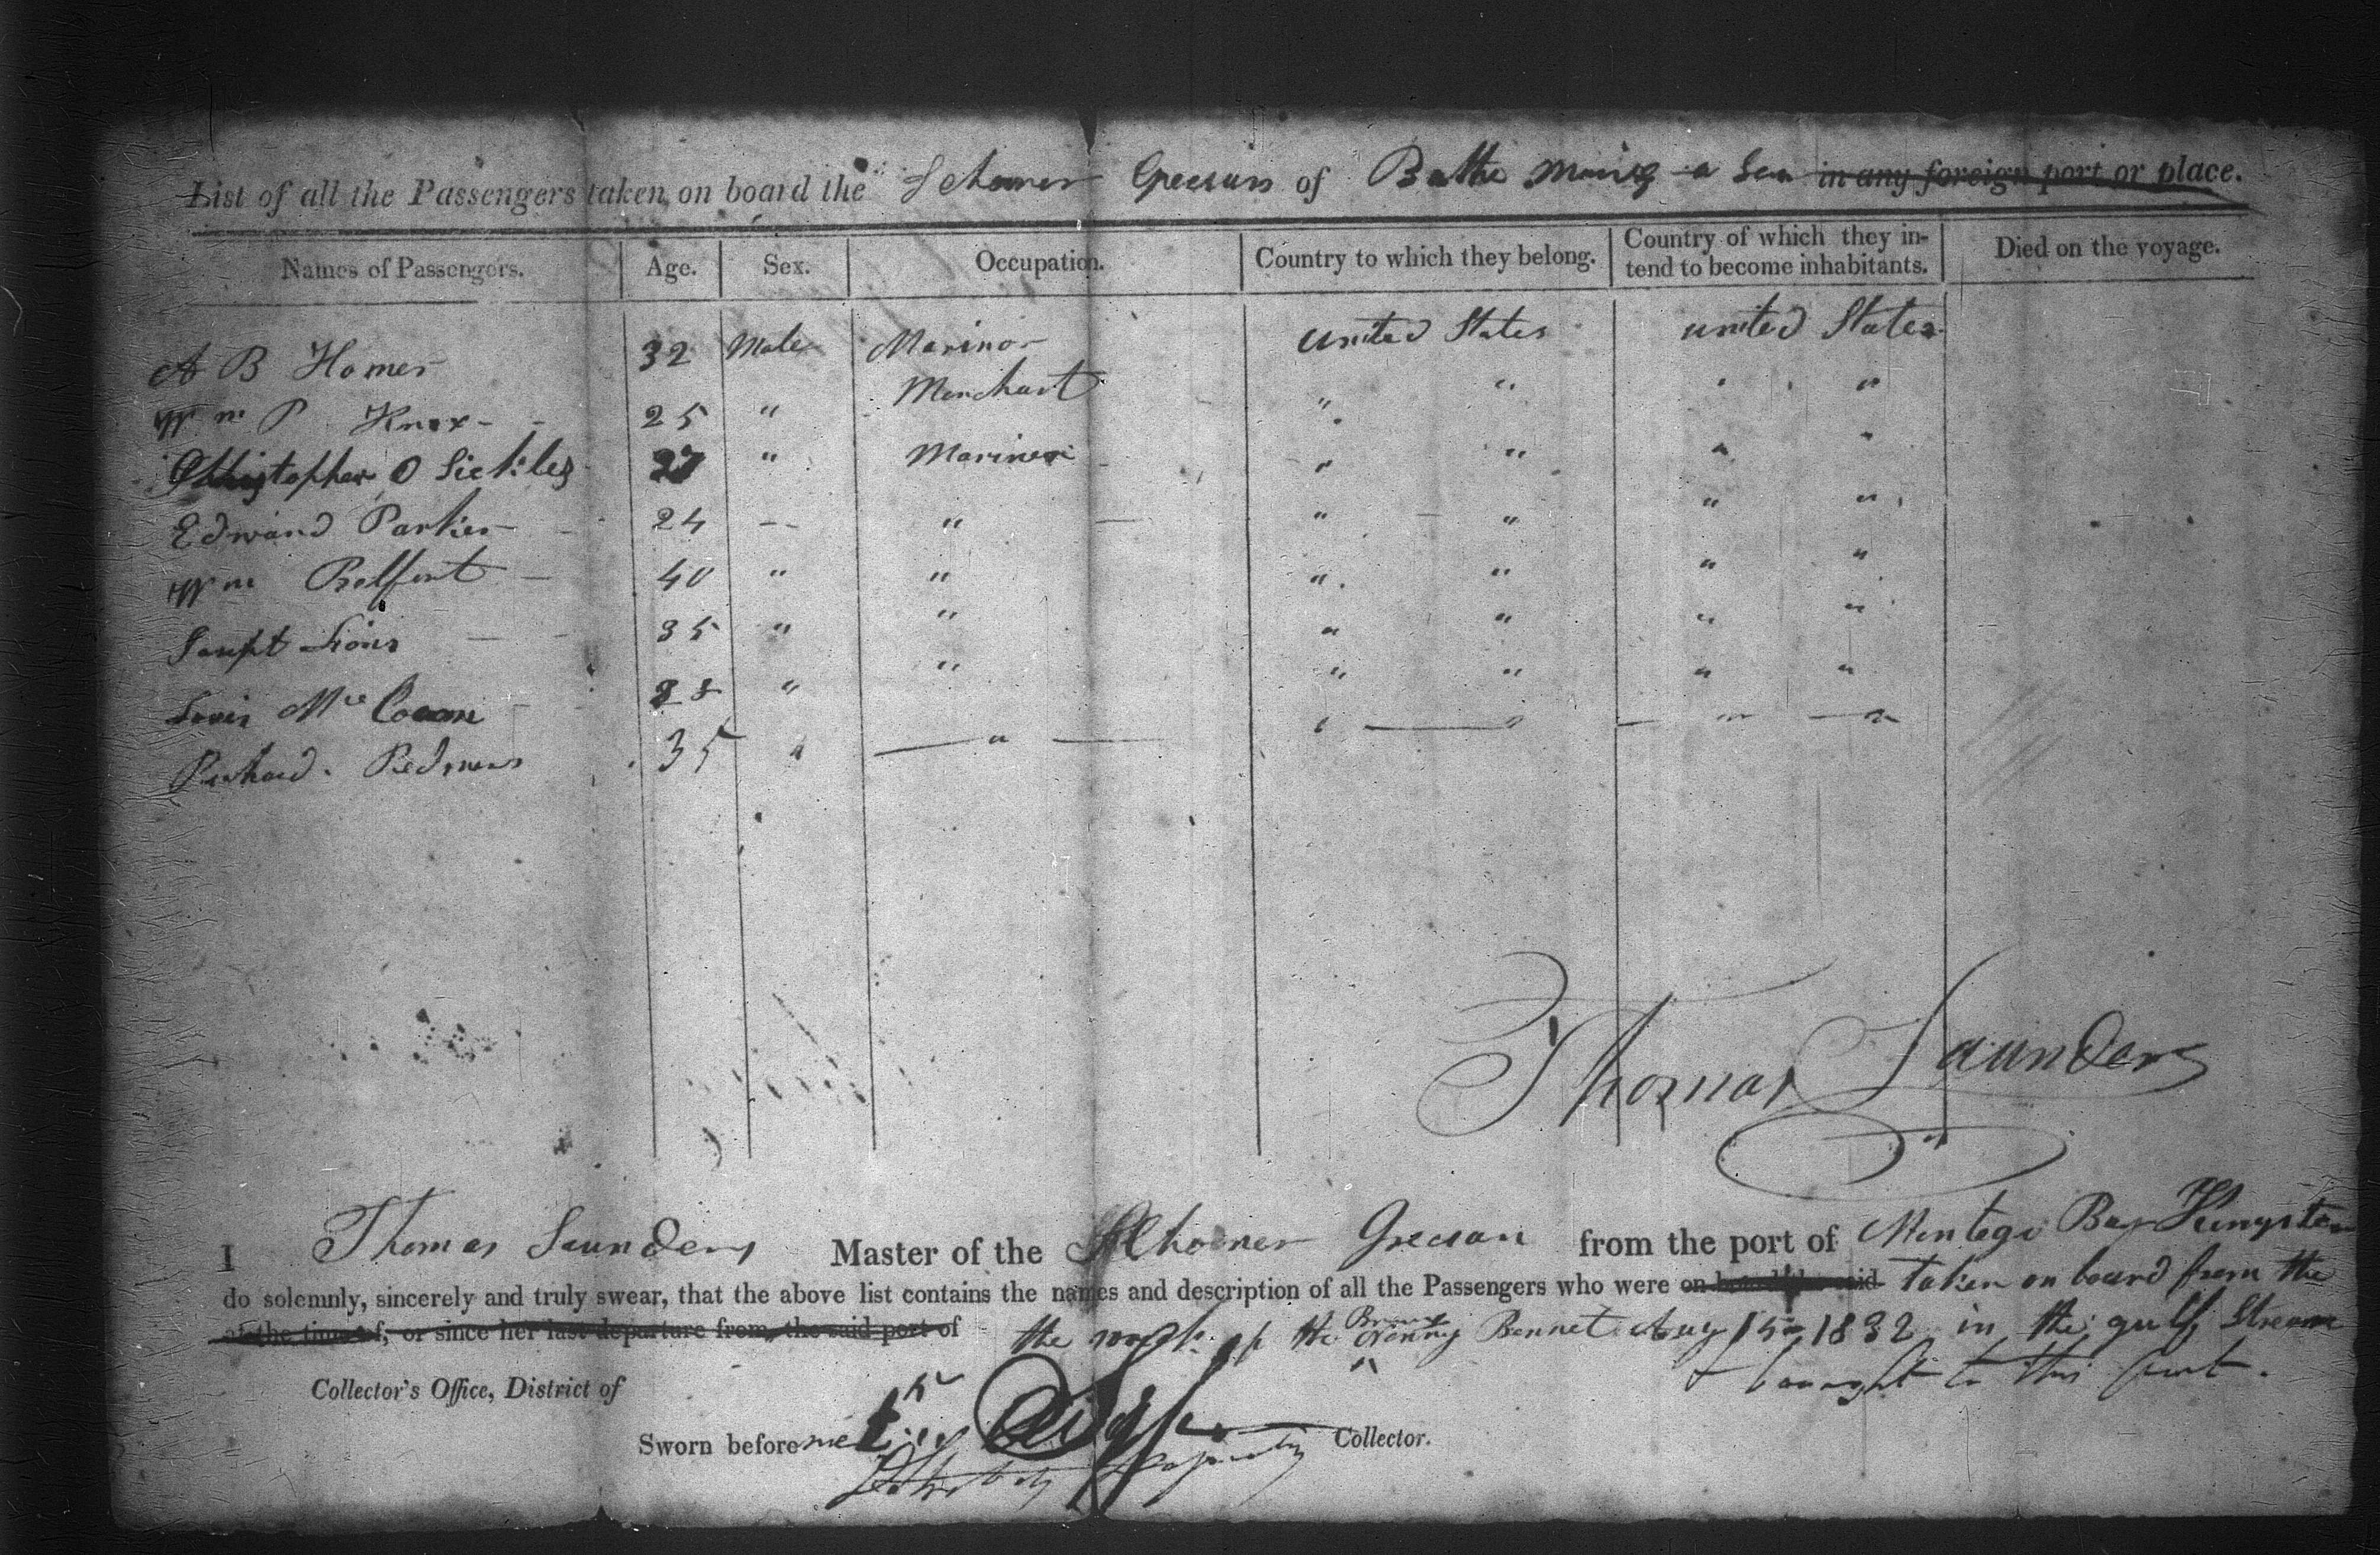 List of all the Passengers taken on board the Schoner Grecian of Bathe at Sea in any foreign port or place.
Names of Passengers. Age. Sex. Occupation. Country to which they belong. Country of which they intend to become inhabitants. Died on the voyage.
A B Homer 32 Male Marinor United States United States
Wm P Knox 25 " Merchant " " " "
Christopher O Sickles 27 " Mariner " " " "
Edward Parker 24 -- " " " " "
Wm Belfort 40 " " " " " "
Lions 35 " " " " " "
Louis Mc " " " " " "
Richard 35 " " " " " "
Thomas Saunders
I Thomas Saunders Master of the Schooner Grecian from the port of Montego Bay Kingston
do solemnly, sincerely and truly swear, that the above list contains the names and description of all the Passengers who were on board the said taken on board from the
at the time of, or since her last departure from, the said port of the of the Brig Nanny Bennet Aug 15 1832 in the gulf Stream
& brought to this port.
Collector's Office, District of
Sworn before me Collector.